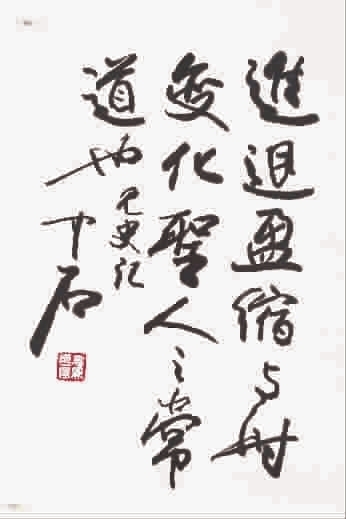 進退盈縮与時
變化聖人之常
道也
見史記
中石